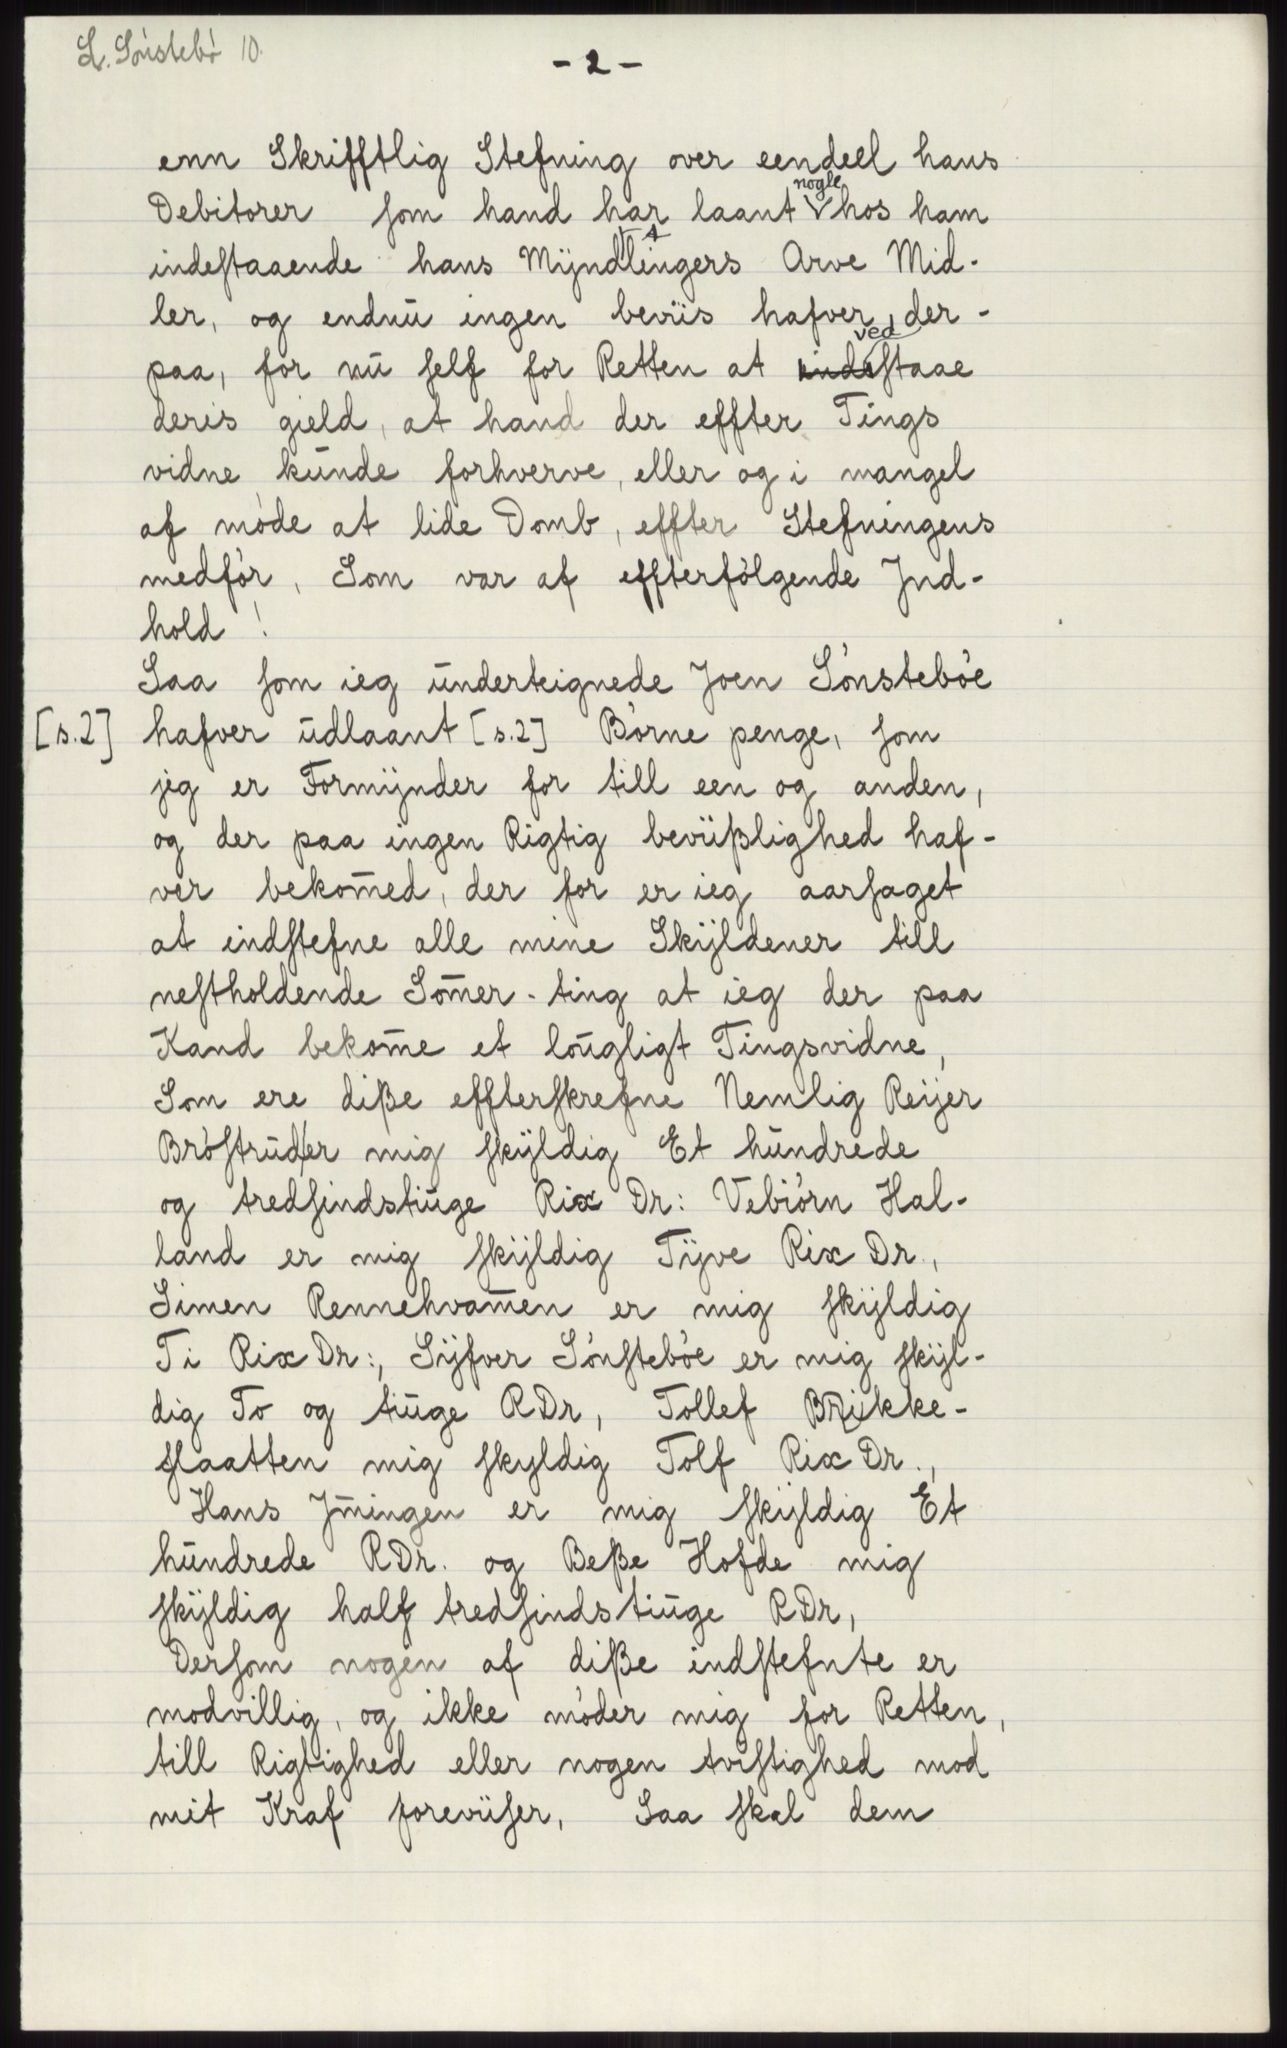 L. Sónstebó 10.
- 2 -
enn Skrifftlig Stefning over eendeel hans
Debitorer som hand har laant nogle hos ham
indestaaende hans Mÿndlingers Arve Mid-
ler, og endnū ingen beviis hafver, der-
paa, for nū self for Retten at inde ved staae
deris gield, at hand der effter Tings
vidne kūnde forhverve, eller og i mangel
af móde at lide Domb, effter Stefningens
medfór, Som var af effterfólgende Jnd-
hold !
Saa som ieg ūnderteignede Joen Sónstebóe
[s.2] hafver ūdlaant [s.2] Bórne penge, som
jeg er Formÿnder for till een og anden,
og der paa ingen Rigtig beviißlighed haf-
ver bekom̄ed, der for er ieg aarsaget
at indstefne alle mine Skÿldener till
nestholdende Som̄er-ting at ieg der paa
Kand bekom̄e et loūgligt Tingsvidne,
Som ere diße effterskrefne Nemlig Reijer
Bróstrūd er mig skÿldig Et hūndrede
og tredsindstiūge Rix Dr: Vebiórn Hal-
land er mig skÿldig Tÿve Rix Dr.,
Simen Rennehvam̄en er mig skÿldig
Ti Rix Dr:, Sÿfver Sónstebóe er mig skÿl-
dig To og tiūge RDr, Tollef Brikke-
slaatten mig skyldig Tolf Rix Dr.,
Hans Jm̄ingen er mig skÿldig Et
hūndrede RDr. og Beße Hofde mig
skÿldig half tredsindstiūge RDr,
Dersom nogen af diße indstefnte er
modvillig, og ikke móder mig for Retten,
till Rigtighed eller nogen tvistighed mod
mit Kraf foreviiser, Saa skal dem